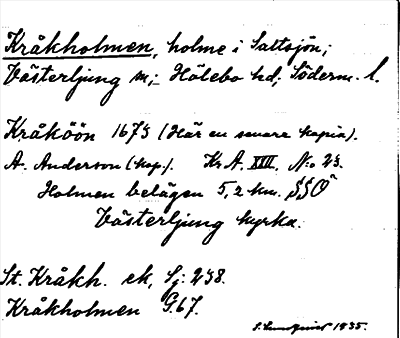 Kråkholmen, holme i Saltsjön,
Västerljung sn; Hölebo hd; Söderm. l.
Kråköön 1673 (Här en senare kopia).
A. Anderson (kop.). Kr.A. XVIII, No 23.
Holmen belägen 5,2 km. SSO
Västerljung kyrka.
St. Kråkh. ek, Sj: 238.
Kråkholmen G.67.
S. Lundqvist 1935.